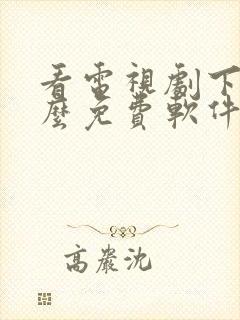 看電視劇下
麼免費軟件
高巖沈